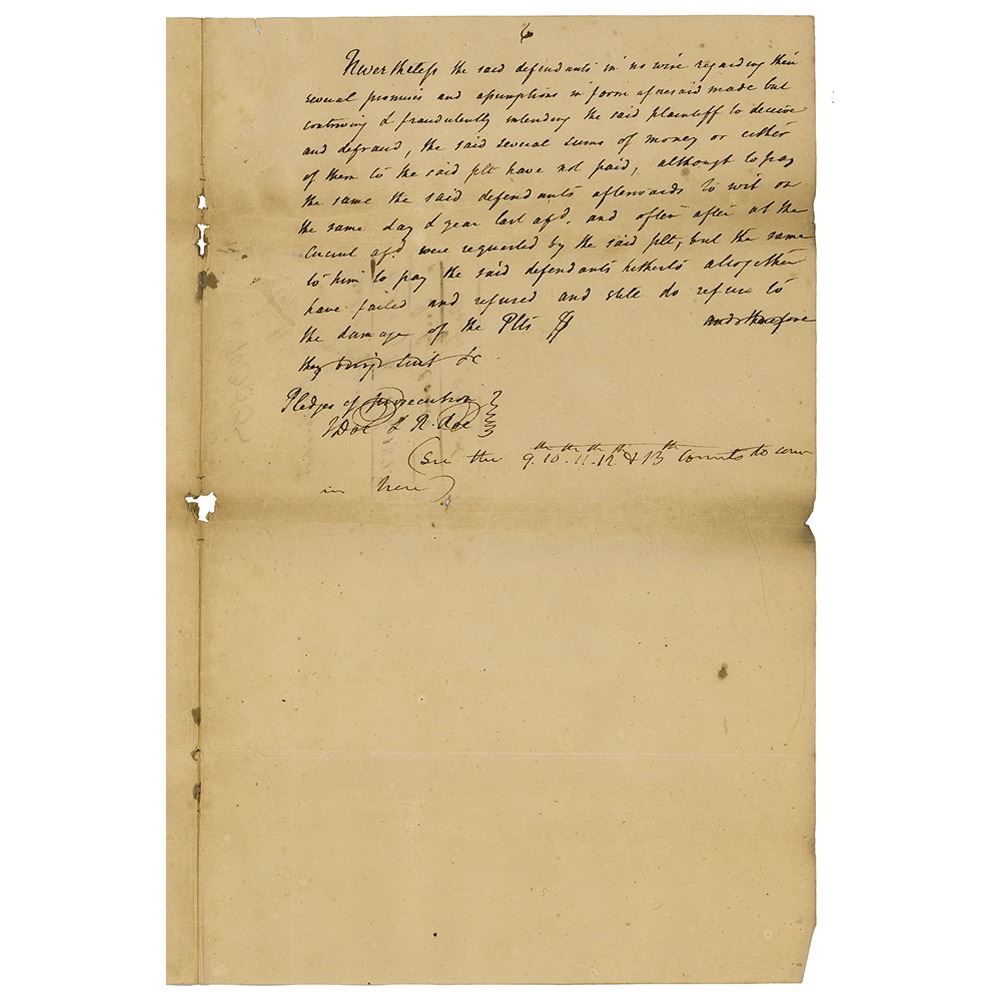 6
Nevertheless the said defendants in no wise regarding their
several promises and assumptions in form aforesaid made but
contriving & fraudulently intending the said plaintiff to deceive
and defraud, the said several sums of money or either
of them to the said plt have not paid, although to pay
the same the said defendants afterwards to wit on
the same day & year last afd. and often after at the
Circuit afd. were requested by the said plt, but the same
to him to pay the said defendants hitherto altogether
have failed and refused and still do refuse to
the damage of the Plts $ and therefore
they brings suit &c
Pledges of prosecution
J Doe & R. Roe
(See the 9th. 10th. 11th. 12th & 13th Counts to come
in here)